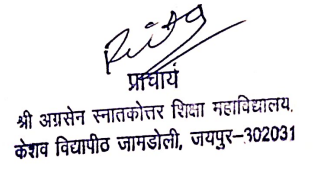 प्राचार्य
श्री अग्रसेन स्नातकोत्तर शिक्षा महाविद्यालय,
केशव विद्यापीठ जामडोली, जयपुर-302031